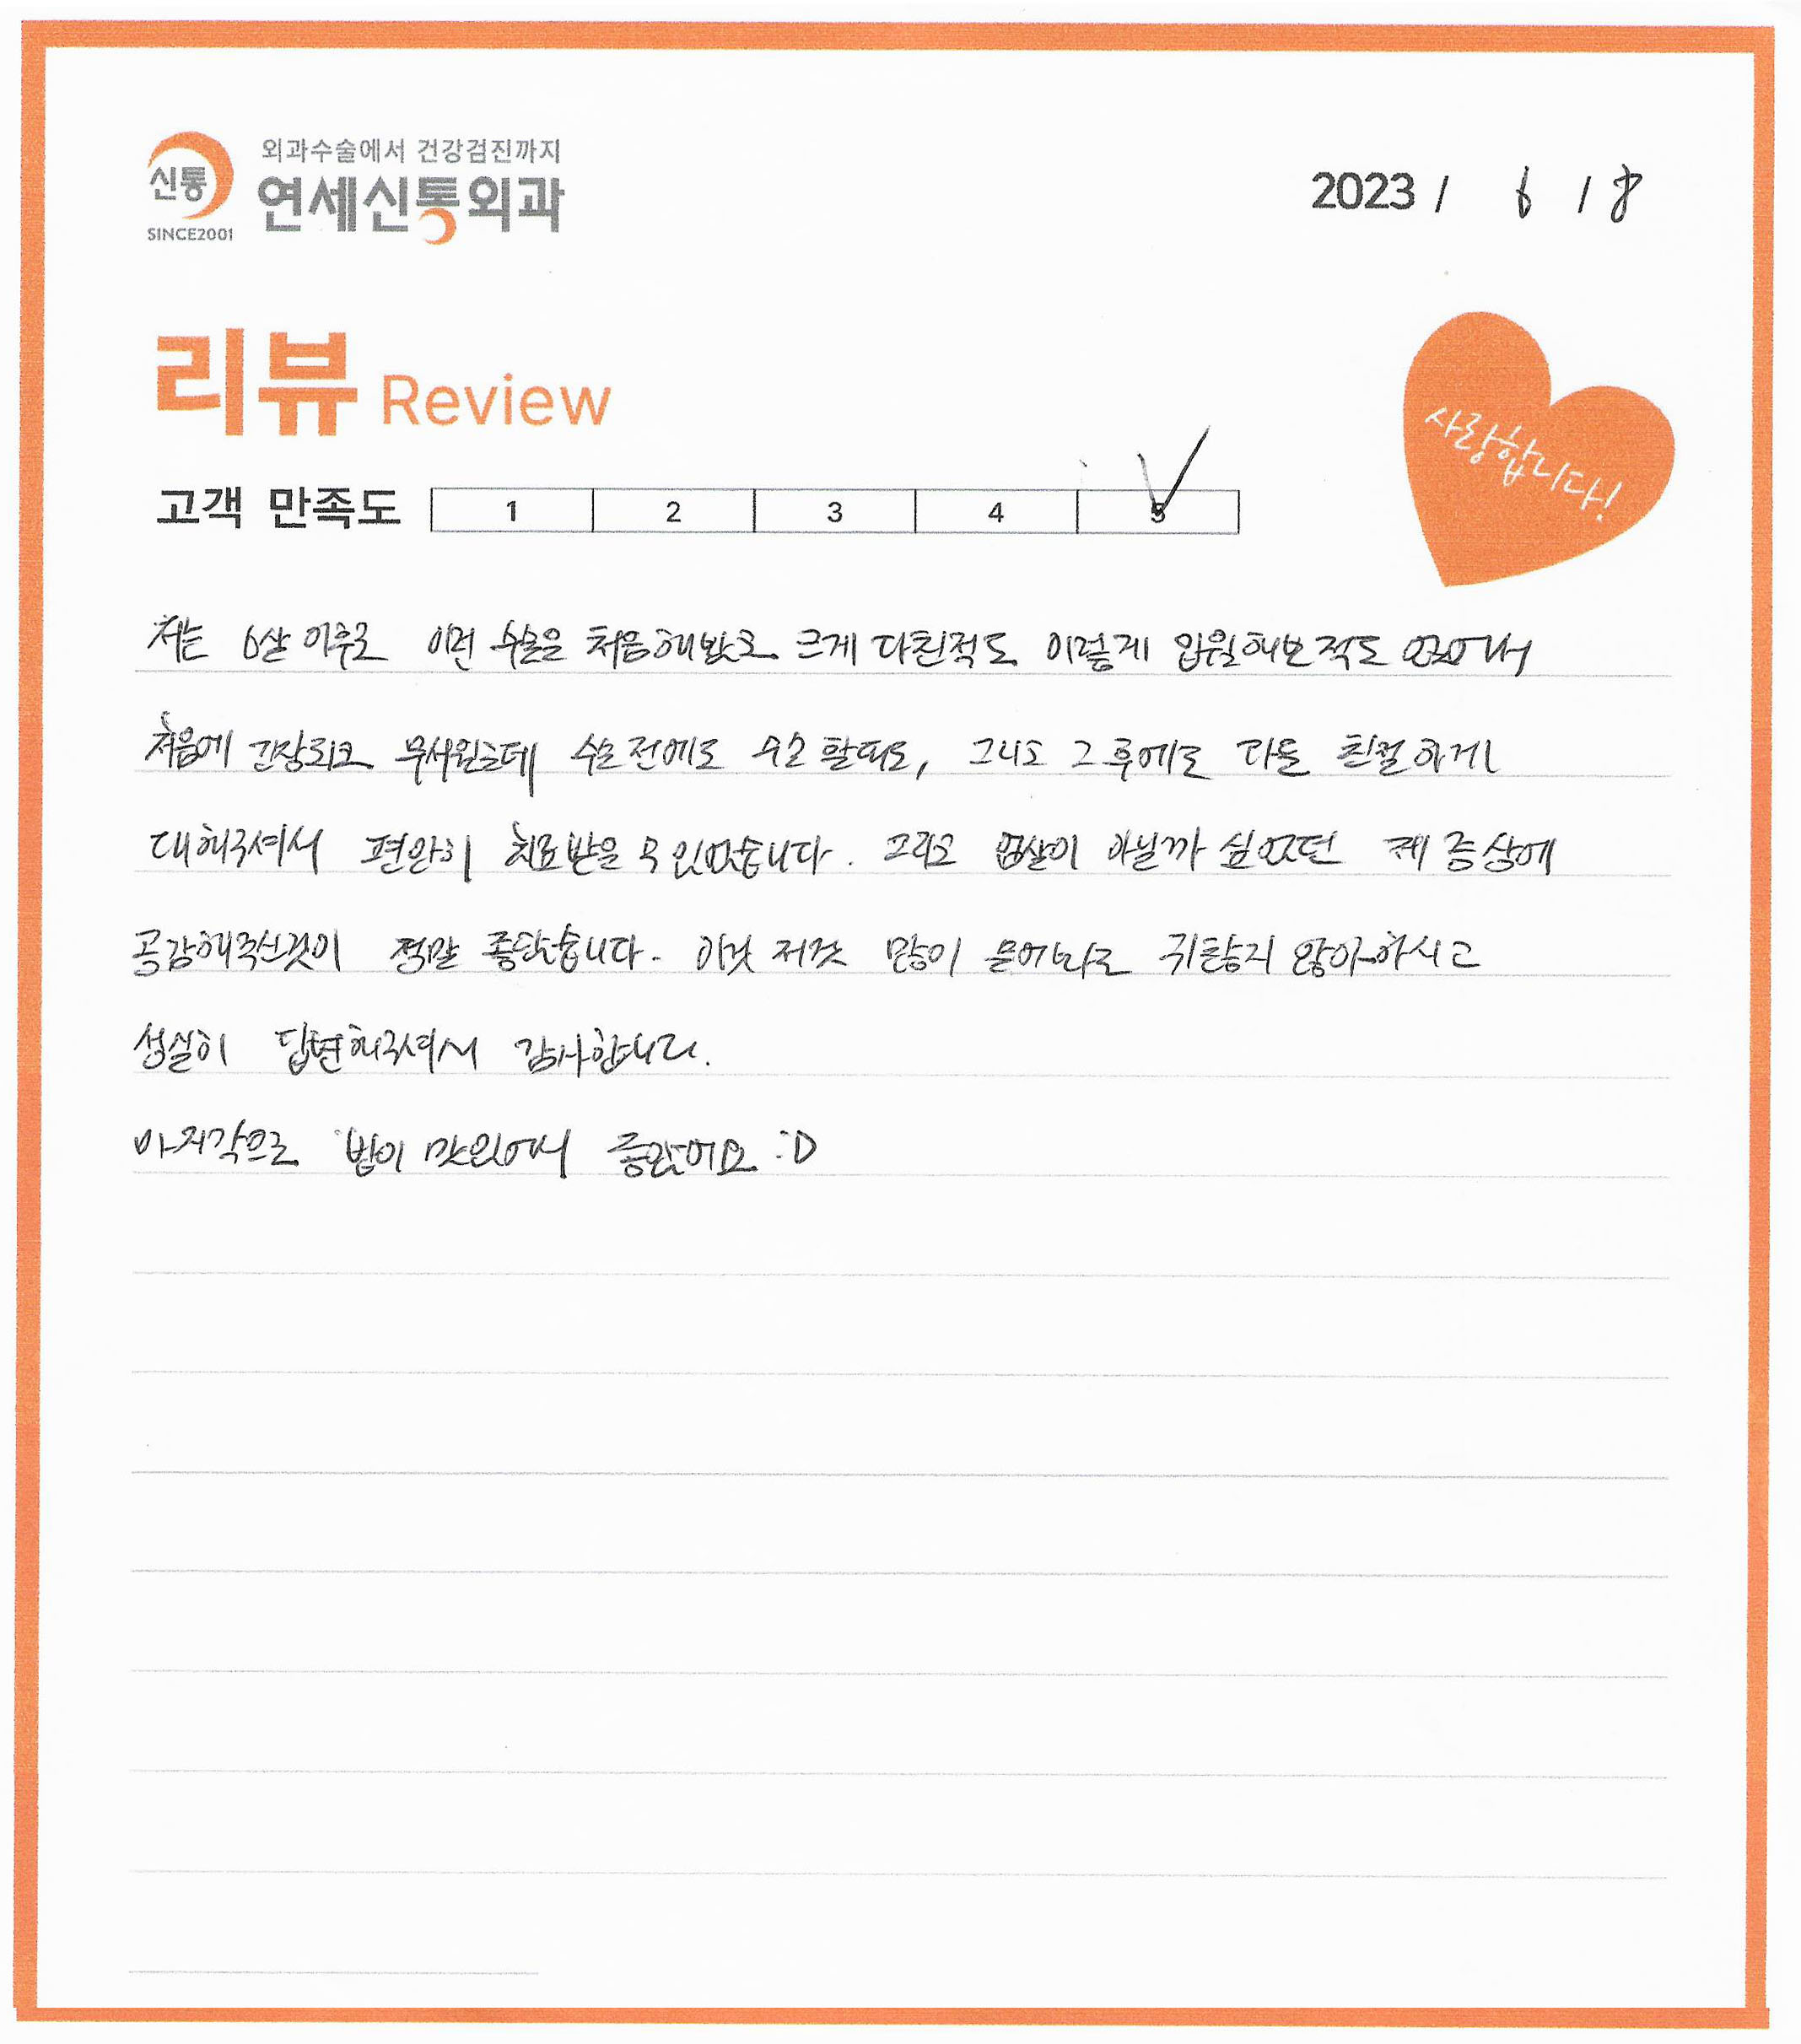 신통
SINCE2001
외과수술에서 건강검진까지
연세신통외과
2023 / 6 / 8
리뷰 Review
사랑합니다!
고객 만족도 1 2 3 4 5
저는 6살 이후로 이런 수술을 처음해봤고 크게 다친적도 이렇게 입원해본적도 없어서
처음에 긴장되고 무서웠는데 수술 전에도 수술 할때도, 그리고 그 후에도 다들 친절하게
대해주셔서 편안히 치료받을 수 있었습니다. 그리고 엄살이 아닐까 싶었던 제 증상에
공감해주신것이 정말 좋았습니다. 이것 저것 많이 물어봐도 귀찮지 않아하시고
성실히 답변해주셔서 감사합니다.
마지막으로 밥이 맛있어서 좋았어요 :D